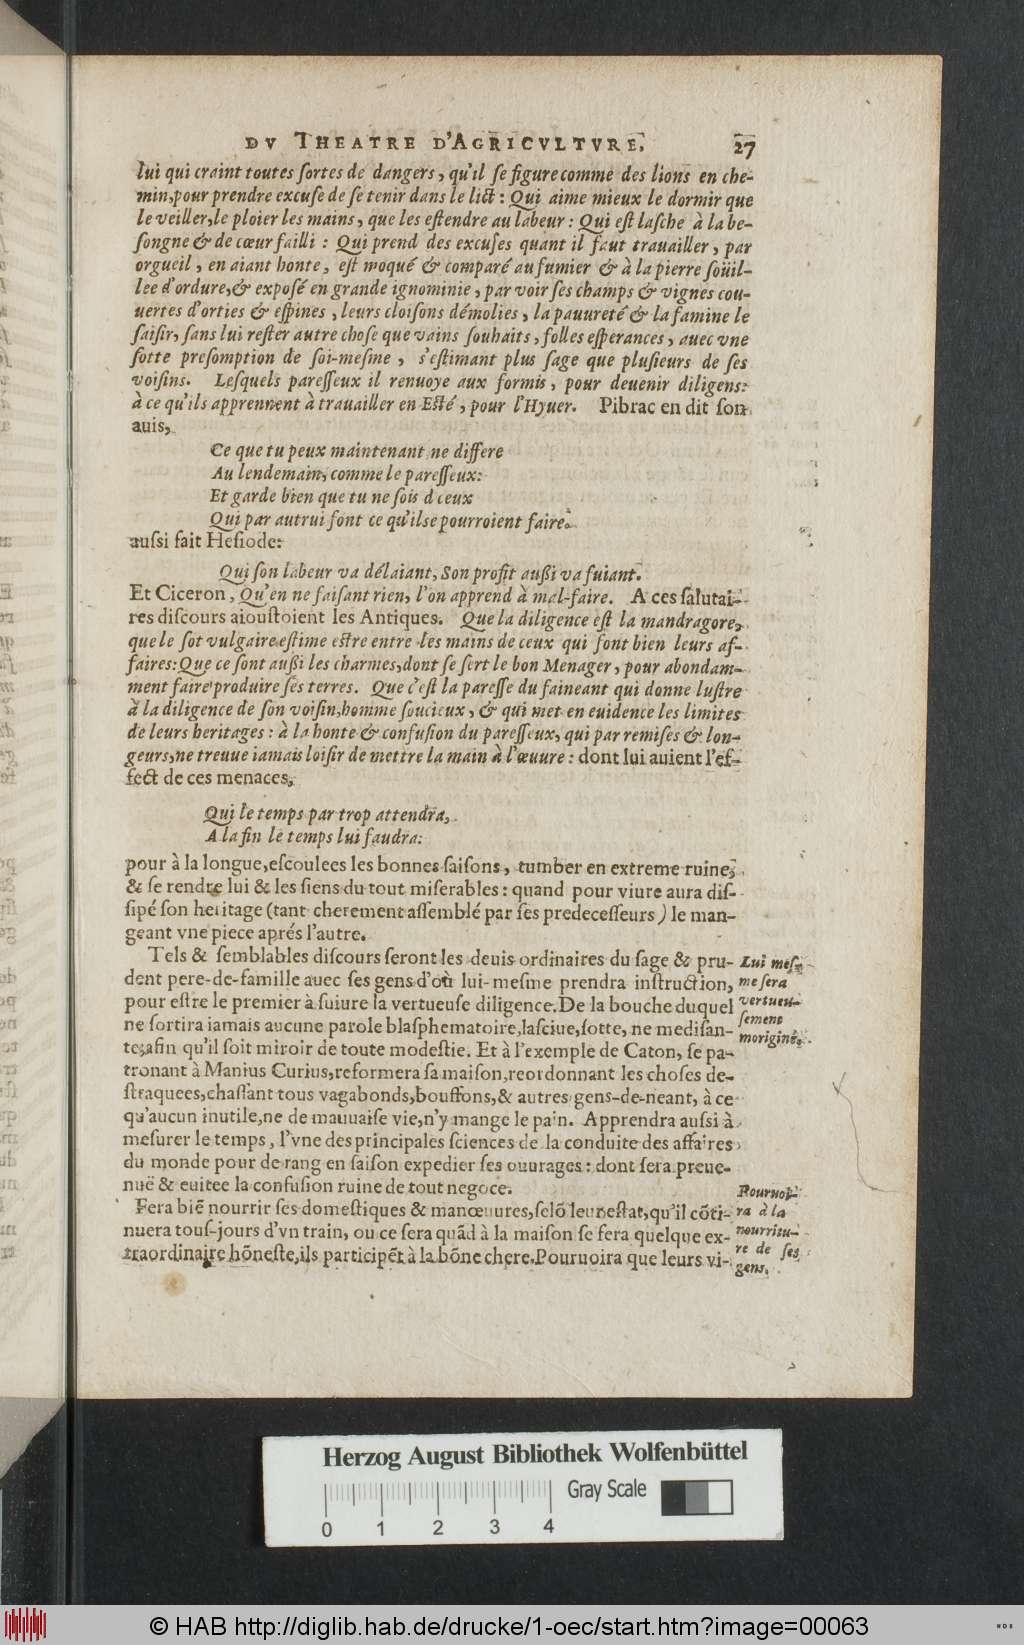 DV THEATRE D'AGRICVLTVRE. 27
lui qui craint toutes ſortes de dangers, qu'il ſe figure comme des lions en che-
min, pour prendre excuſe de ſe tenir dans le lict : Qui aime mieux le dormir que
le veiller, le ploier les mains, que les eſtendre au labeur : Qui eſt laſche à la be-
ſongne & de cœur failli : Qui prend des excuſes quant il faut trauailler, par
orgueil, en aiant honte, eſt moqué & comparé au fumier & à la pierre ſoüil-
lee d'ordure, & expoſé en grande ignominie, par voir ſes champs & vignes cou-
uertes d'orties & eſpines, leurs cloiſons démolies, la pauureté & la famine le
ſaiſir, ſans lui reſter autre choſe que vains ſouhaits, folles eſperances, auec vne
ſotte preſomption de ſoi-meſme, s'eſtimant plus ſage que pluſieurs de ſes
voiſins. Leſquels pareſſeux il renuoye aux formis, pour deuenir diligens:
à ce qu'ils apprennent à trauailler en Eſté, pour l'Hyuer. Pibrac en dit ſon
auis,
Ce que tu peux maintenant ne differe
Au lendemain, comme le pareſſeux:
Et garde bien que tu ne ſois d ceux
Qui par autrui font ce qu'ilse pourroient faire.
auſsi fait Heſiode:
Qui ſon labeur va délaiant, Son profit außi va fuiant.
Et Ciceron, Qu'en ne faiſant rien, l'on apprend à mal-faire. A ces ſalutai-
res diſcours aiouſtoient les Antiques. Que la diligence eſt la mandragore,
que le ſot vulgaire eſtime eſtre entre les mains de ceux qui font bien leurs af-
faires: Que ce ſont außi les charmes, dont ſe ſert le bon Menager, pour abondam-
ment faire produire ſes terres. Que c'eſt la pareſſe du faineant qui donne luſtre
à la diligence de ſon voiſin, homme ſoucieux, & qui met en euidence les limites
de leurs heritages : à la honte & confuſion du pareſſeux, qui par remiſes & lon-
geurs, ne treuue iamais loiſir de mettre la main à l'œuure : dont lui auient l'ef-
fect de ces menaces,
Qui le temps par trop attendra,
A la fin le temps lui faudra:
pour à la longue, eſcoulees les bonnes ſaiſons, tumber en extreme ruine,
& ſe rendre lui & les ſiens du tout miſerables : quand pour viure aura diſ-
ſipé ſon heritage (tant cherement aſſemblé par ſes predeceſſeurs) le man-
geant vne piece aprés l'autre.
Tels & ſemblables diſcours ſeront les deuis ordinaires du ſage & pru-
dent pere-de-famille auec ſes gens d'où lui-meſme prendra inſtruction,
pour eſtre le premier à ſuiure la vertueuſe diligence. De la bouche duquel
ne ſortira iamais aucune parole blaſphematoire, laſciue, ſotte, ne mediſan-
te, afin qu'il ſoit miroir de toute modeſtie. Et à l'exemple de Caton, ſe pa-
tronant à Manius Curius, reformera ſa maiſon, reordonnant les choſes de-
ſtraquees, chaſſant tous vagabonds, bouffons, & autres gens-de-neant, à ce
qu'aucun inutile, ne de mauuaiſe vie, n'y mange le pain. Apprendra auſsi à
meſurer le temps, l'vne des principales ſciences de la conduite des affaires
du monde pour de rang en ſaiſon expedier ſes ouurages : dont ſera preue-
nuë & euitee la confuſion ruine de tout negoce.
Fera biẽ nourrir ſes domeſtiques & manœuures, ſelõ leur eſtat, qu'il cõti-
nuera touſ-jours d'vn train, ou ce ſera quãd à la maiſon ſe fera quelque ex-
traordinaire hõneſte, ils participẽt à la bõne chere. Pouruoira que leurs vi-
Lui meſ-
me ſera
vertueu-
ſement
moriginé.
Pouruoi-
ra à la
nourritu-
re de ſes
gens.
Herzog August Bibliothek Wolfenbüttel
Gray Scale
0 1 2 3 4
© HAB http://diglib.hab.de/drucke/1-oec/start.htm?image=00063